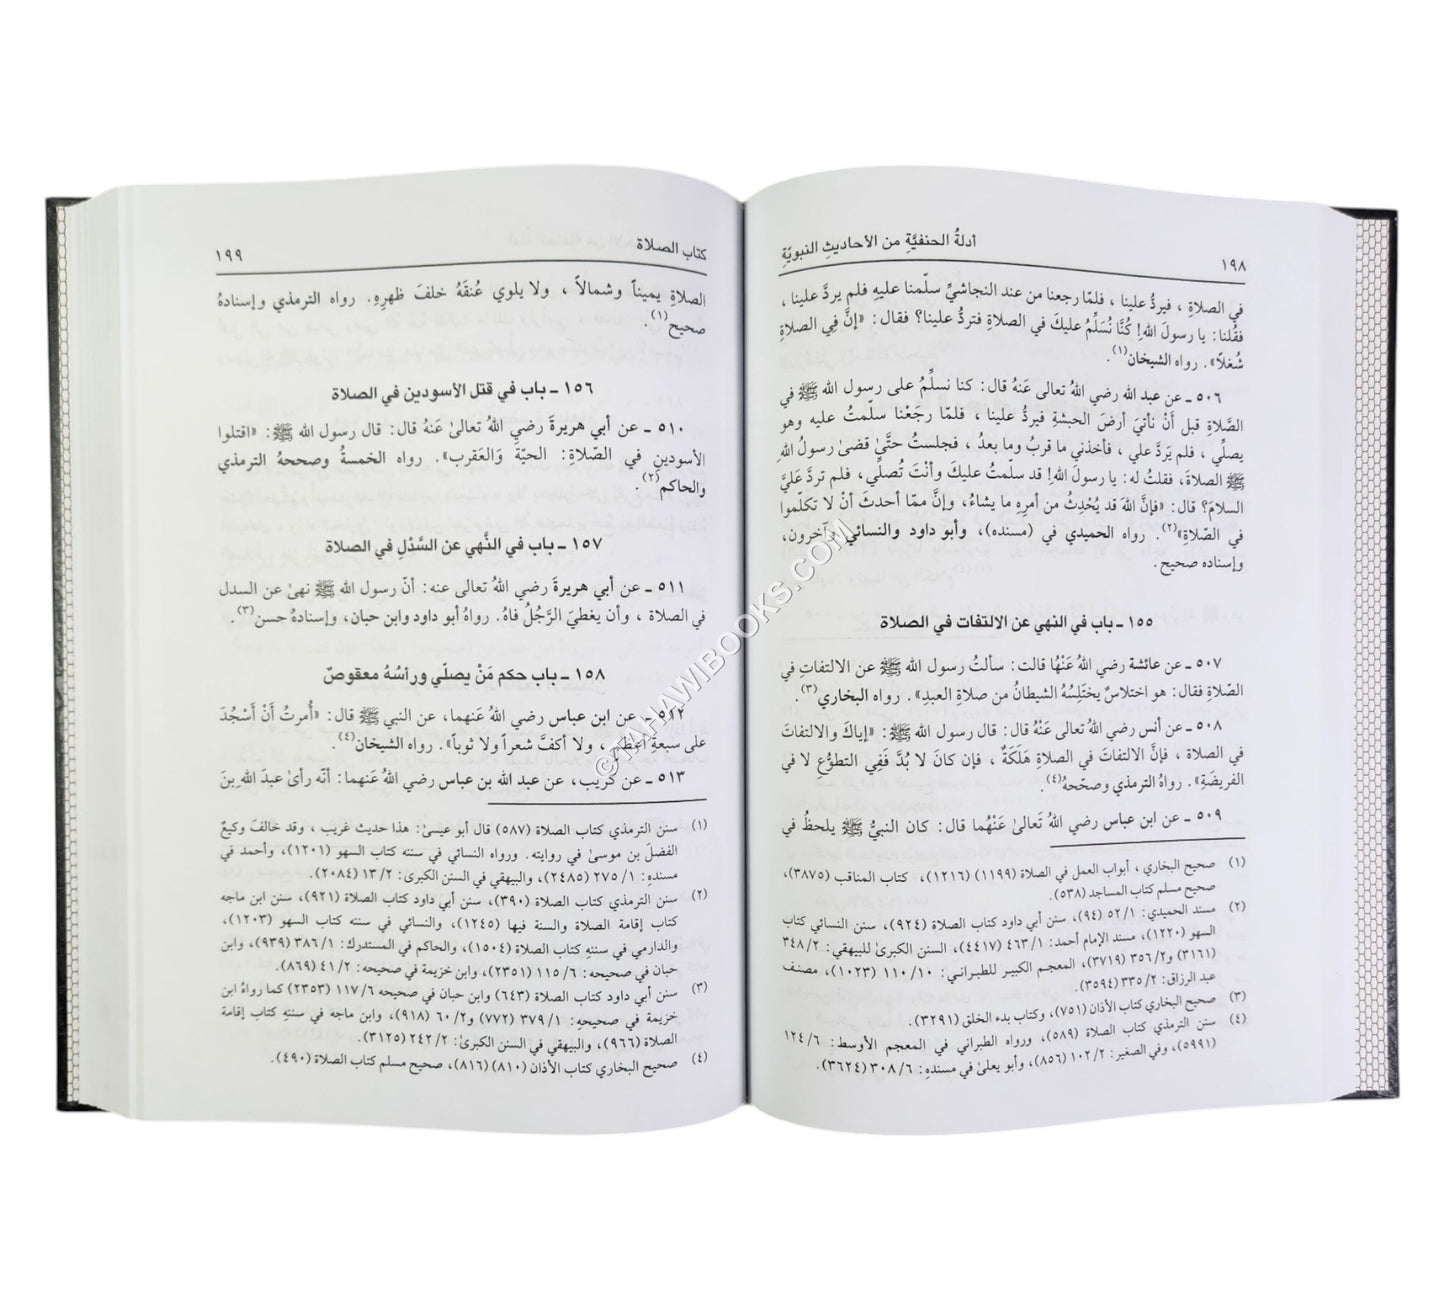 أدلةُ الحنفيَّةِ من الأحاديثِ النبويّةِ
١٩٨
في الصلاةِ ، فيردُّ علينا ، فلمّا رجعنا من عند النجاشيِّ سلّمنا عليهِ فلم يردَّ علينا ،
فقُلنا: يا رسولَ الله! كُنَّا نُسَلِّمُ عليكَ في الصلاةِ فتردُّ علينا؟ فقال: «إنَّ فِي الصلاةِ
شُغلاً». رواه الشيخان(١).
٥٠٦ ـ عن عبد الله رضي اللهُ تعالى عَنهُ قال: كنا نسلِّمُ على رسول الله ﷺ في
الصَّلاةِ قبل أَنْ نأتيَ أرضَ الحبشةِ فيردُّ علينا ، فلمّا رجَعْنا سلّمتُ عليه وهو
يصلِّي ، فلم يَردَّ علي ، فأخذني ما قربُ وما بعدُ ، فجلستُ حتَّىٰ قضىٰ رسولُ اللهِ
ﷺ الصلاةَ، فقلتُ له: يا رسولَ الله! قد سلّمتُ عليكَ وأنْتَ تُصلِّي، فلم تردَّ عَليَّ
السلامَ؟ قال: «فإنَّ اللهَ قد يُحْدِثُ من أمرِهِ ما يشاءُ، وإنَّ ممّا أحدثَ أنْ لا تكلّموا
في الصّلاةِ»(٢). رواه الحميدي في (مسنده)، وأبو داود والنسائي وآخرون،
وإسناده صحيح.
١٥٥ ـ باب في النهي عن الالتفات في الصلاة
٥٠٧ ـ عن عائشة رضي اللهُ عَنْهُا قالت: سألتُ رسول الله ﷺ عن الالتفاتِ في
الصّلاةِ فقال: هو اختلاسٌ يختَلِسُهُ الشيطانُ من صلاةِ العبدِ». رواه البخاري(٣).
٥٠٨ ـ عن أنس رضي اللهُ تعالىٰ عَنْهُ قال: قال رسول الله ﷺ: «إياكَ والالتفاتَ
في الصلاة ، فإنَّ الالتفاتَ في الصلاةِ هَلَكَةٌ ، فإن كانَ لا بُدَّ فَفِي التطوُّعِ لا في
الفريضَةِ». رواهُ الترمذي وصحّحهُ(٤).
٥٠٩ ـ عن ابن عباس رضي اللهُ تَعالىٰ عَنْهُما قال: كان النبيُّ ﷺ يلحظُ في
(١) صحيح البخاري ، أبواب العمل في الصلاة (١١٩٩) (١٢١٦)، كتاب المناقب (٣٨٧٥)،
صحيح مسلم كتاب المساجد (٥٣٨).
(٢) مسند الحميدي: ١/ ٥٢ (٩٤)، سنن أبي داود كتاب الصلاة (٩٢٤)، سنن النسائي كتاب
السهو (١٢٢٠)، مسند الإمام أحمد: ١/ ٤٦٣ (٤٤١٧)، السنن الكبرىٰ للبيهقي: ٢/ ٣٤٨
(٣١٦١) و٢/ ٣٥٦ (٣٧١٩)، المعجم الكبير للطبراني: ١٠/ ١١٠ (١٠٢٣)، مصنف
عبد الرزاق: ٢/ ٣٣٥ (٣٥٩٤).
(٣) صحيح البخاري كتاب الأذان (٧٥١)، وكتاب بدء الخلق (٣٢٩١).
(٤) سنن الترمذي كتاب الصلاة (٥٨٩)، ورواه الطبراني في المعجم الأوسط: ٦/ ١٢٤
(٥٩٩١)، وفي الصغير: ٢/ ١٠٢ (٨٥٦)، وأبو يعلىٰ في مسندِهِ: ٦/ ٣٠٨ (٣٦٢٤).
كتاب الصلاة
١٩٩
الصلاةِ يميناً وشمالاً ، ولا يلوي عُنقَهُ خلفَ ظهرِهِ. رواه الترمذي وإسنادهُ
صحيح(١).
١٥٦ ـ باب في قتل الأسودين في الصلاة
٥١٠ ـ عن أبي هريرةَ رضي اللهُ تعالىٰ عَنهُ قال: قال رسول الله ﷺ: «اقتلوا
الأسودينِ في الصّلاةِ: الحيّةَ وَالعَقرب». رواه الخمسةُ وصححهُ الترمذي
والحاكم(٢).
١٥٧ ـ باب في النَّهي عن السَّدْلِ في الصلاة
٥١١ ـ عن أبي هريرة رضي اللهُ تعالى عنه: أنّ رسول الله ﷺ نهىٰ عن السدل
في الصلاة ، وأن يغطيَ الرَّجُلُ فاهُ. رواهُ أبو داود وابن حبان، وإسنادهُ حسن(٣).
١٥٨ ـ باب حكم مَنْ يصلّي ورأسُهُ معقوصٌ
٥١٢ ـ عن ابن عباس رضي اللهُ عَنهما، عن النبي ﷺ قال: «أُمرتُ أَنْ أَسْجُدَ
على سبعةِ أعظُمٍ ، ولا أكفَّ شعراً ولا ثوباً». رواه الشيخان(٤).
٥١٣ ـ عن كُريب، عن عبد الله بن عباس رضي اللهُ عَنهما: أنّه رأىٰ عبدَ اللهِ بنَ
(١) سنن الترمذي كتاب الصلاة (٥٨٧) قال أبو عيسىٰ: هذا حديث غريب ، وقد خالفَ وكيعٌ
الفضلَ بن موسىٰ في روايته. ورواه النسائي في سننه كتاب السهو (١٢٠١)، وأحمد في
مسندِهِ: ١/ ٢٧٥ (٢٤٨٥)، والبيهقي في السنن الكبرى: ٢/ ١٣ (٢٠٨٤).
(٢) سنن الترمذي كتاب الصلاة (٣٩٠)، سنن أبي داود كتاب الصلاة (٩٢١)، سنن ابن ماجه
كتاب إقامة الصلاة والسنة فيها (١٢٤٥)، والنسائي في سننه كتاب السهو (١٢٠٣)،
والدارمي في سننهِ كتاب الصلاة (١٥٠٤)، والحاكم في المستدرك: ١/ ٣٨٦ (٩٣٩)، وابن
حبان في صحيحه: ٦/ ١١٥ (٢٣٥١)، وابن خزيمة في صحيحه: ٢/ ٤١ (٨٦٩).
(٣) سنن أبي داود كتاب الصلاة (٦٤٣) وابن حبان في صحيحه ٦/ ١١٧ (٢٣٥٣) كما رواهُ ابن
خزيمة في صحيحهِ: ١/ ٣٧٩ (٧٧٢) و٢/ ٦٠ (٩١٨)، وابن ماجه في سننهِ كتاب إقامة
الصلاة (٩٦٦)، والبيهقي في السنن الكبرىٰ: ٢/ ٢٤٢ (٣١٢٥).
(٤) صحيح البخاري كتاب الأذان (٨١٠) (٨١٦)، صحيح مسلم كتاب الصلاة (٤٩٠).
©TAHAWIBOOKS.COM